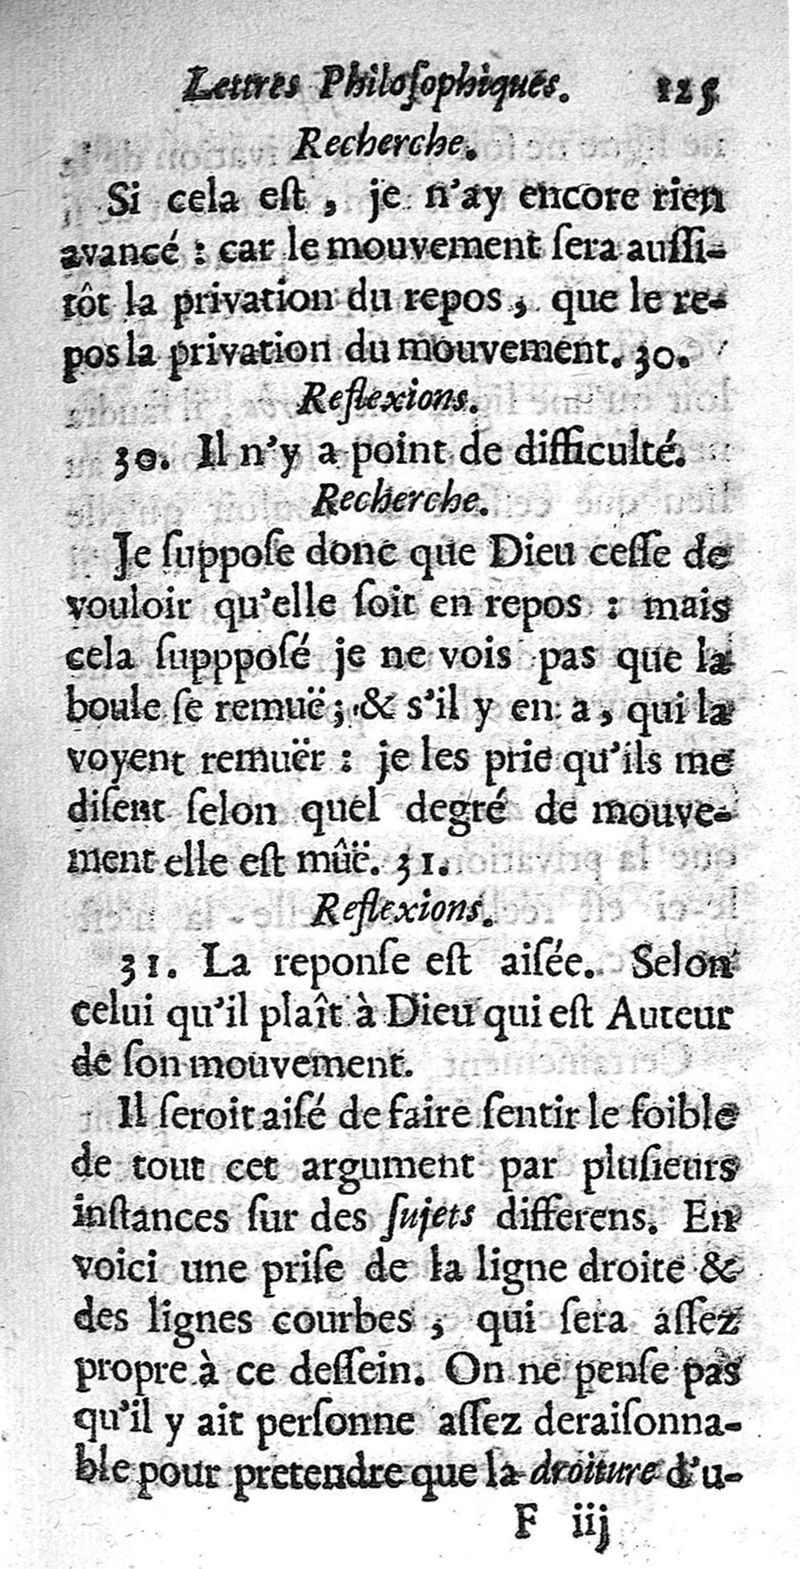 Lettres Philoſophiques. 125
Recherche.
Si cela eſt, je n'ay encore rien
avancé : car le mouvement ſera auſſi-
tôt la privation du repos, que le re-
pos la privation du mouvement. 30.
Reflexions.
30. Il n'y a point de difficulté.
Recherche.
Je ſuppoſe donc que Dieu ceſſe de
vouloir qu'elle ſoit en repos : mais
cela ſupppoſé je ne vois pas que la
boule ſe remuë; & s'il y en a, qui la
voyent remuër : je les prie qu'ils me
diſent ſelon quel degré de mouve-
ment elle eſt mûë. 31.
Reflexions.
31. La reponſe eſt aiſée. Selon
celui qu'il plaît à Dieu qui eſt Auteur
de ſon mouvement.
Il ſeroit aiſé de faire ſentir le foible
de tout cet argument par pluſieurs
inſtances ſur des ſujets differens. En
voici une priſe de la ligne droite &
des lignes courbes, qui ſera aſſez
propre à ce deſſein. On ne penſe pas
qu'il y ait perſonne aſſez deraiſonna-
ble pour pretendre que la droiture d'u-
F iij